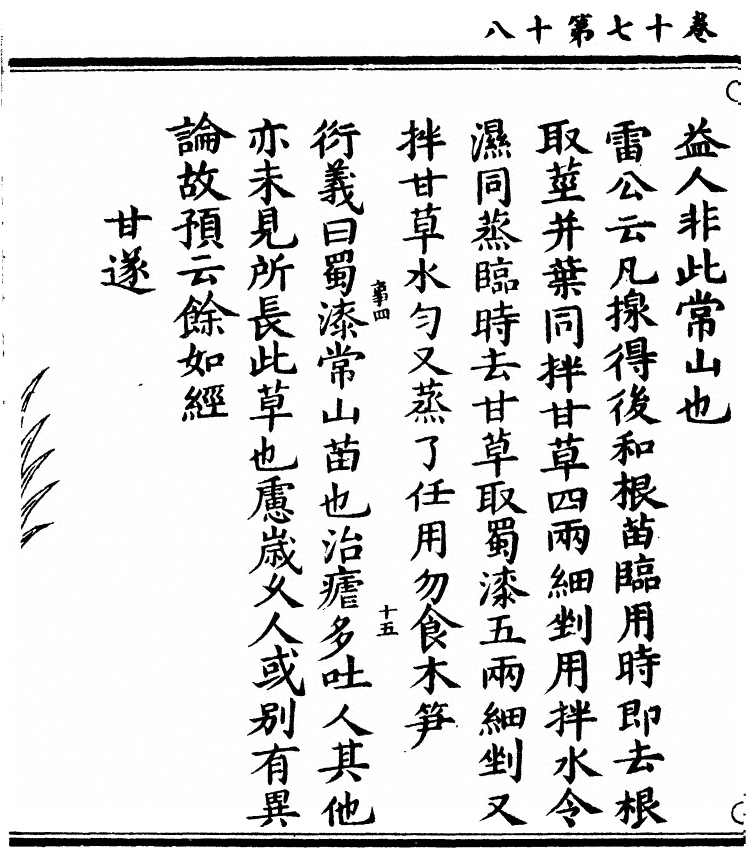 卷十七第十八
益人非此常山也
雷公云凡採得後和根苗臨用時即去根
取莖并葉同拌甘草四兩細剉用拌水令
濕同蒸臨時去甘草取蜀漆五兩細剉又
拌甘草水勻又蒸了任用勿食木笋
四
十五
衍義曰蜀漆常山苗也治瘧多吐人其他
亦未見所長此草也慮歲久人或别有異
論故預云餘如經
甘遂